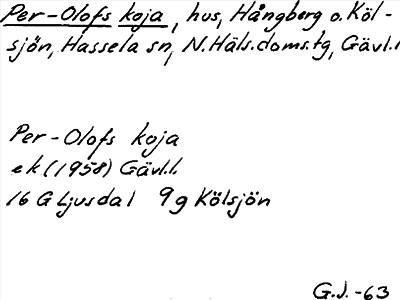 Per-Olofs koja, hus, Hångberg o. Köl-
sjön, Hassela sn, N. Häls. doms. tg, Gävl. l
Per-Olofs koja
ek (1958) Gävl.l.
16 G Ljusdal 9g Kölsjön
G.J. -63